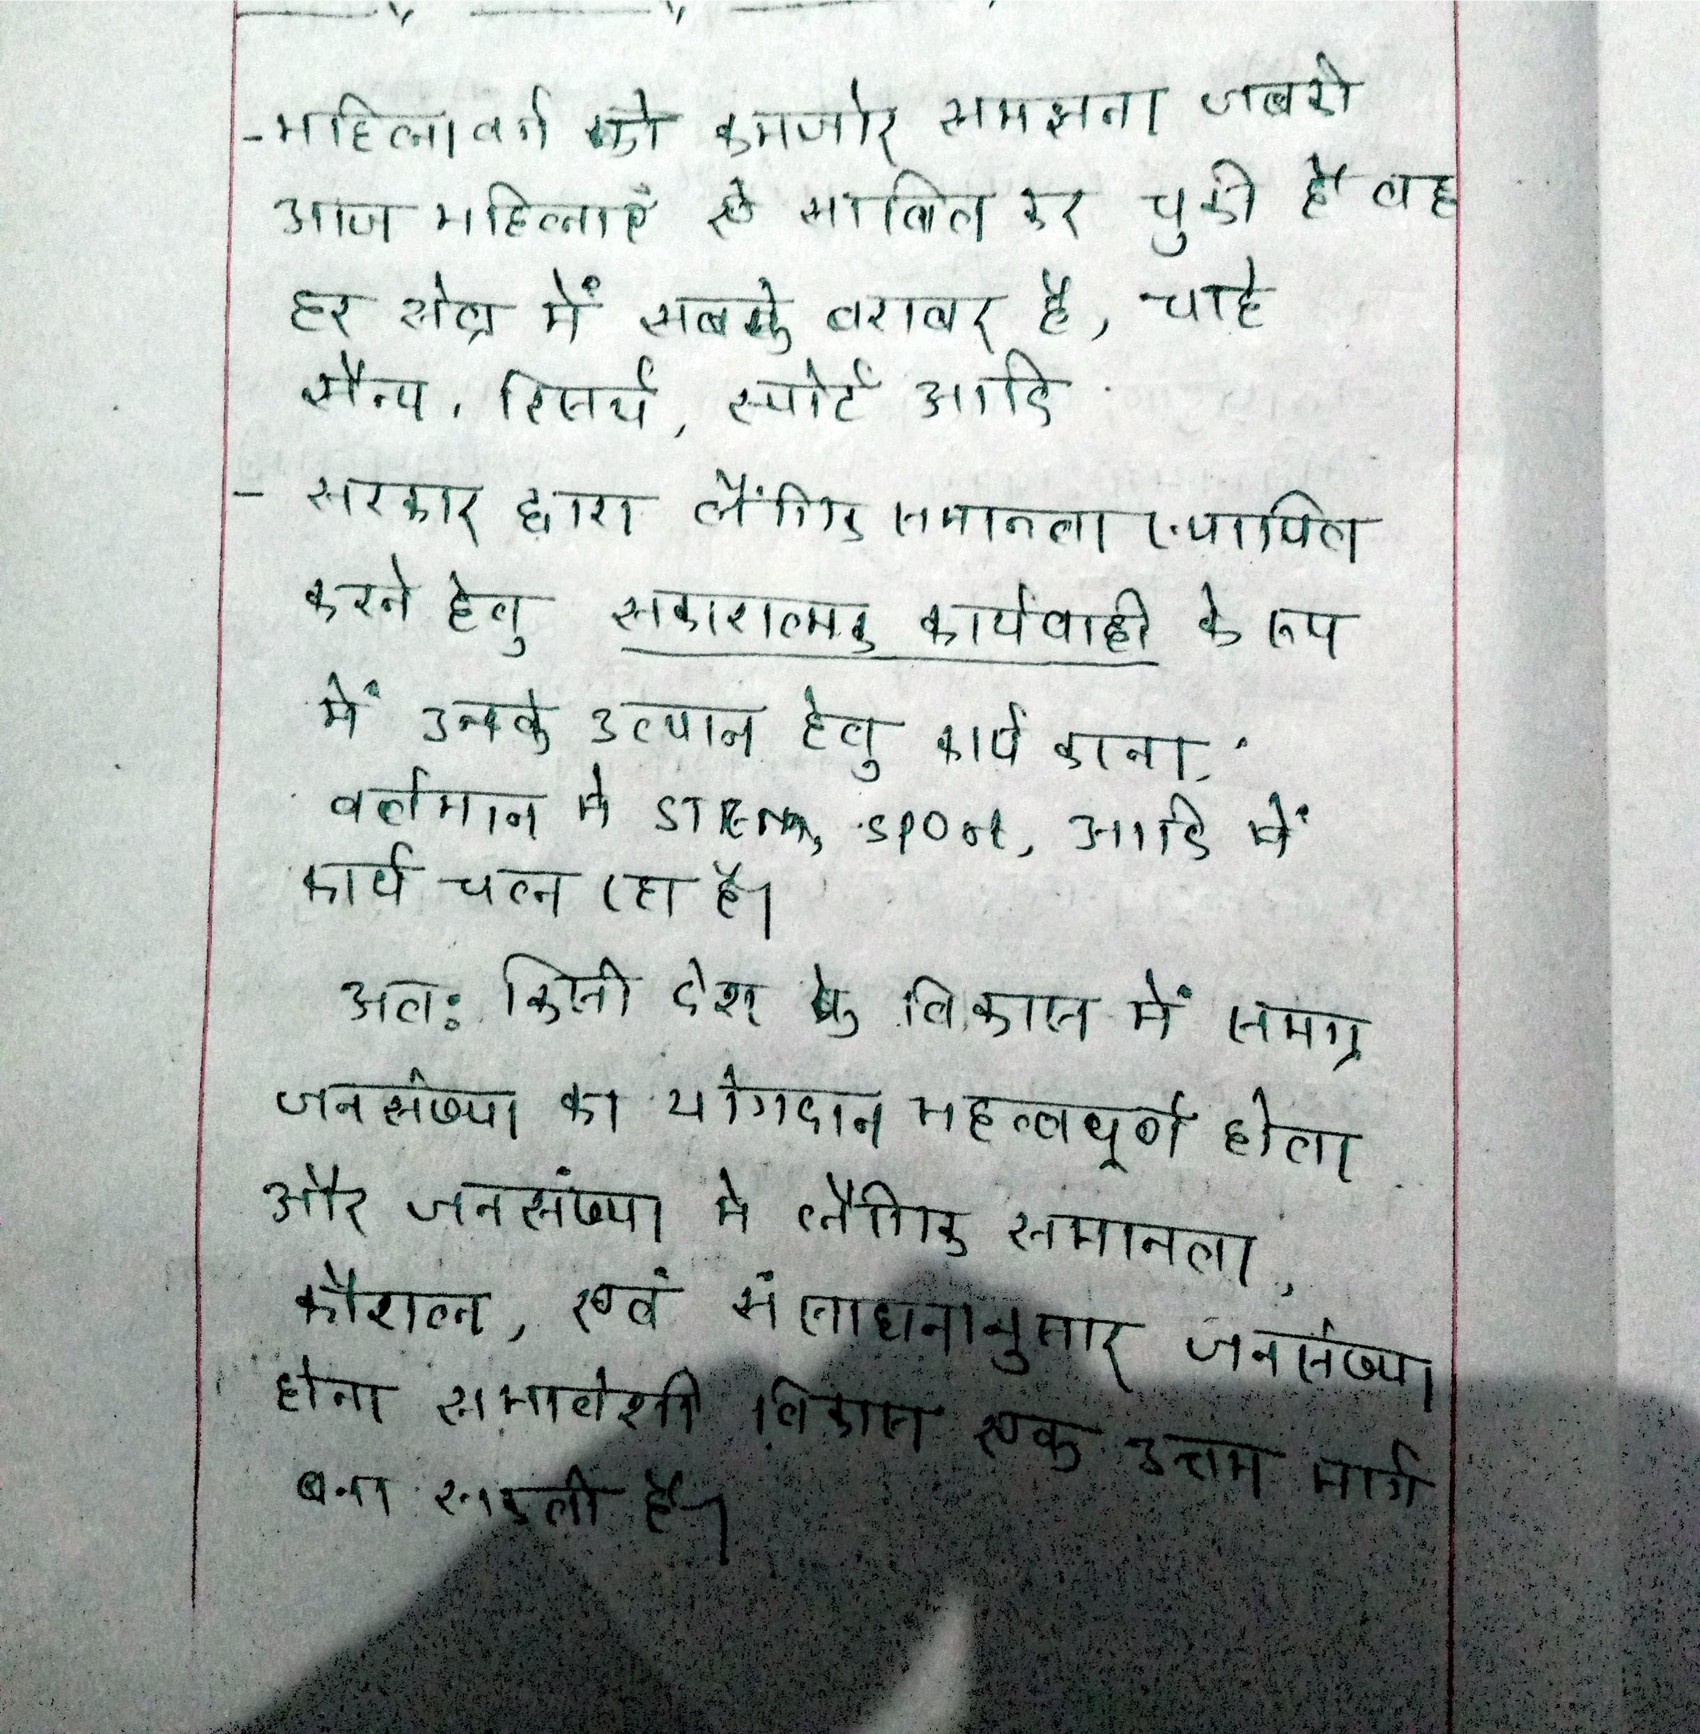 - महिला वर्ग को कमजोर समझना जबकी
आज महिलाएँ ये साबित कर चुकी है वह
हर क्षेत्र में सबके बराबर है, चाहे
सैन्य, रिसर्च, स्पोर्ट आदि
- सरकार द्वारा लैंगिक समानता स्थापित
करने हेतु सकारात्मक कार्यवाही के रूप
में उनके उत्थान हेतु कार्य करना,
वर्तमान मे STEM, sport, आदि में
कार्य चल रहा है।
अतः किसी देश के विकास में समग्र
जनसंख्या का योगदान महत्वपूर्ण होता
और जनसंख्या मे लैंगिक समानता,
कौशल, एवं संसाधनानुसार जनसंख्या
होना समावेशी विकास एक उत्तम मार्ग
बना सकती है।